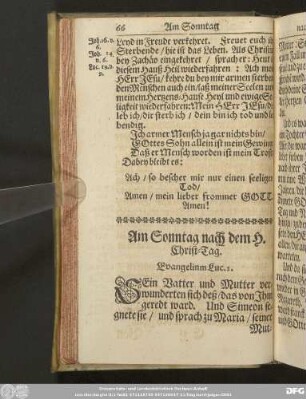 66 Am Sonntag
Leyd in Freude verkehret. Freuet euch ihr
Sterbende / hie ist das Leben. Als Christus
bey Zachäo eingekehret / sprach er: Heut ist
diesem Hauß Heil wiederfahren: Ach mein
HErr JEsu / kehre du bey mir armen sterben
den Menschen auch ein / laß meiner Seelen und
meinem Hertzens-Hause Heyl und ewige Se-
ligkeit wiederfahren: Mein HErr JEsu / dir
leb ich / dir sterb ich / dein bin ich tod und le-
bendig.
Ich armer Mensch ja gar nichts bin /
GOttes Sohn allein ist mein Gewinn
Daß er Mensch worden ist mein Trost
Dabey bleibt es:
Ach / so bescher mir nur einen seeligen
Tod /
Amen / mein lieber frommer GOTT
Amen!
Am Sonntag nach dem H.
Christ-Tag.
Evangelium Luc. 2.
SEin Vatter und Mutter ver-
wunderten sich deß / das von Ihm
geredt ward. Und Simeon se-
gnete sie / und sprach zu Maria / seiner
Mut-